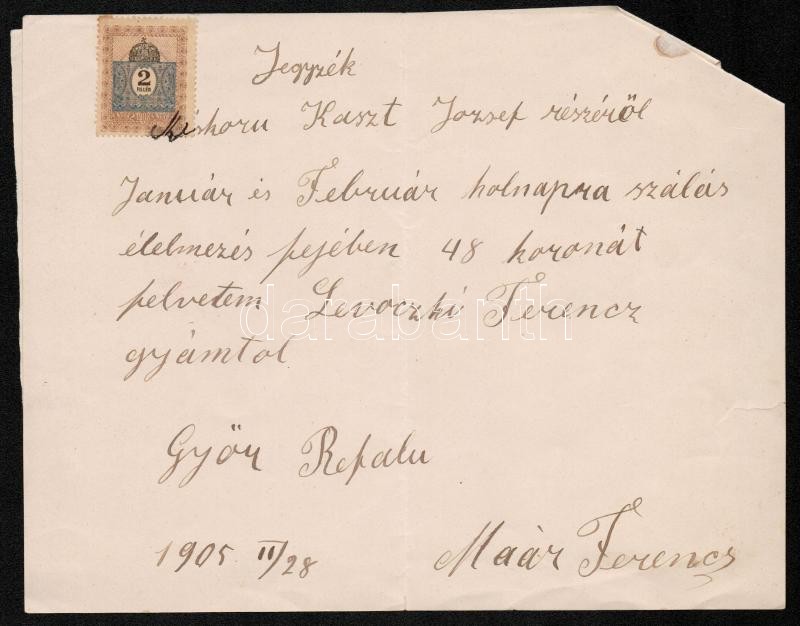 Jegyzék
2
FILLÉR
Kiskoru Kaszt Jozsef részéről
Január és Február holnapra szálás
élelmezés fejében 48 koronát
felvetem Levoczki Ferencz
darabanth
gyámtol
Győr Refalu
1905 II/28
Maár Ferencz